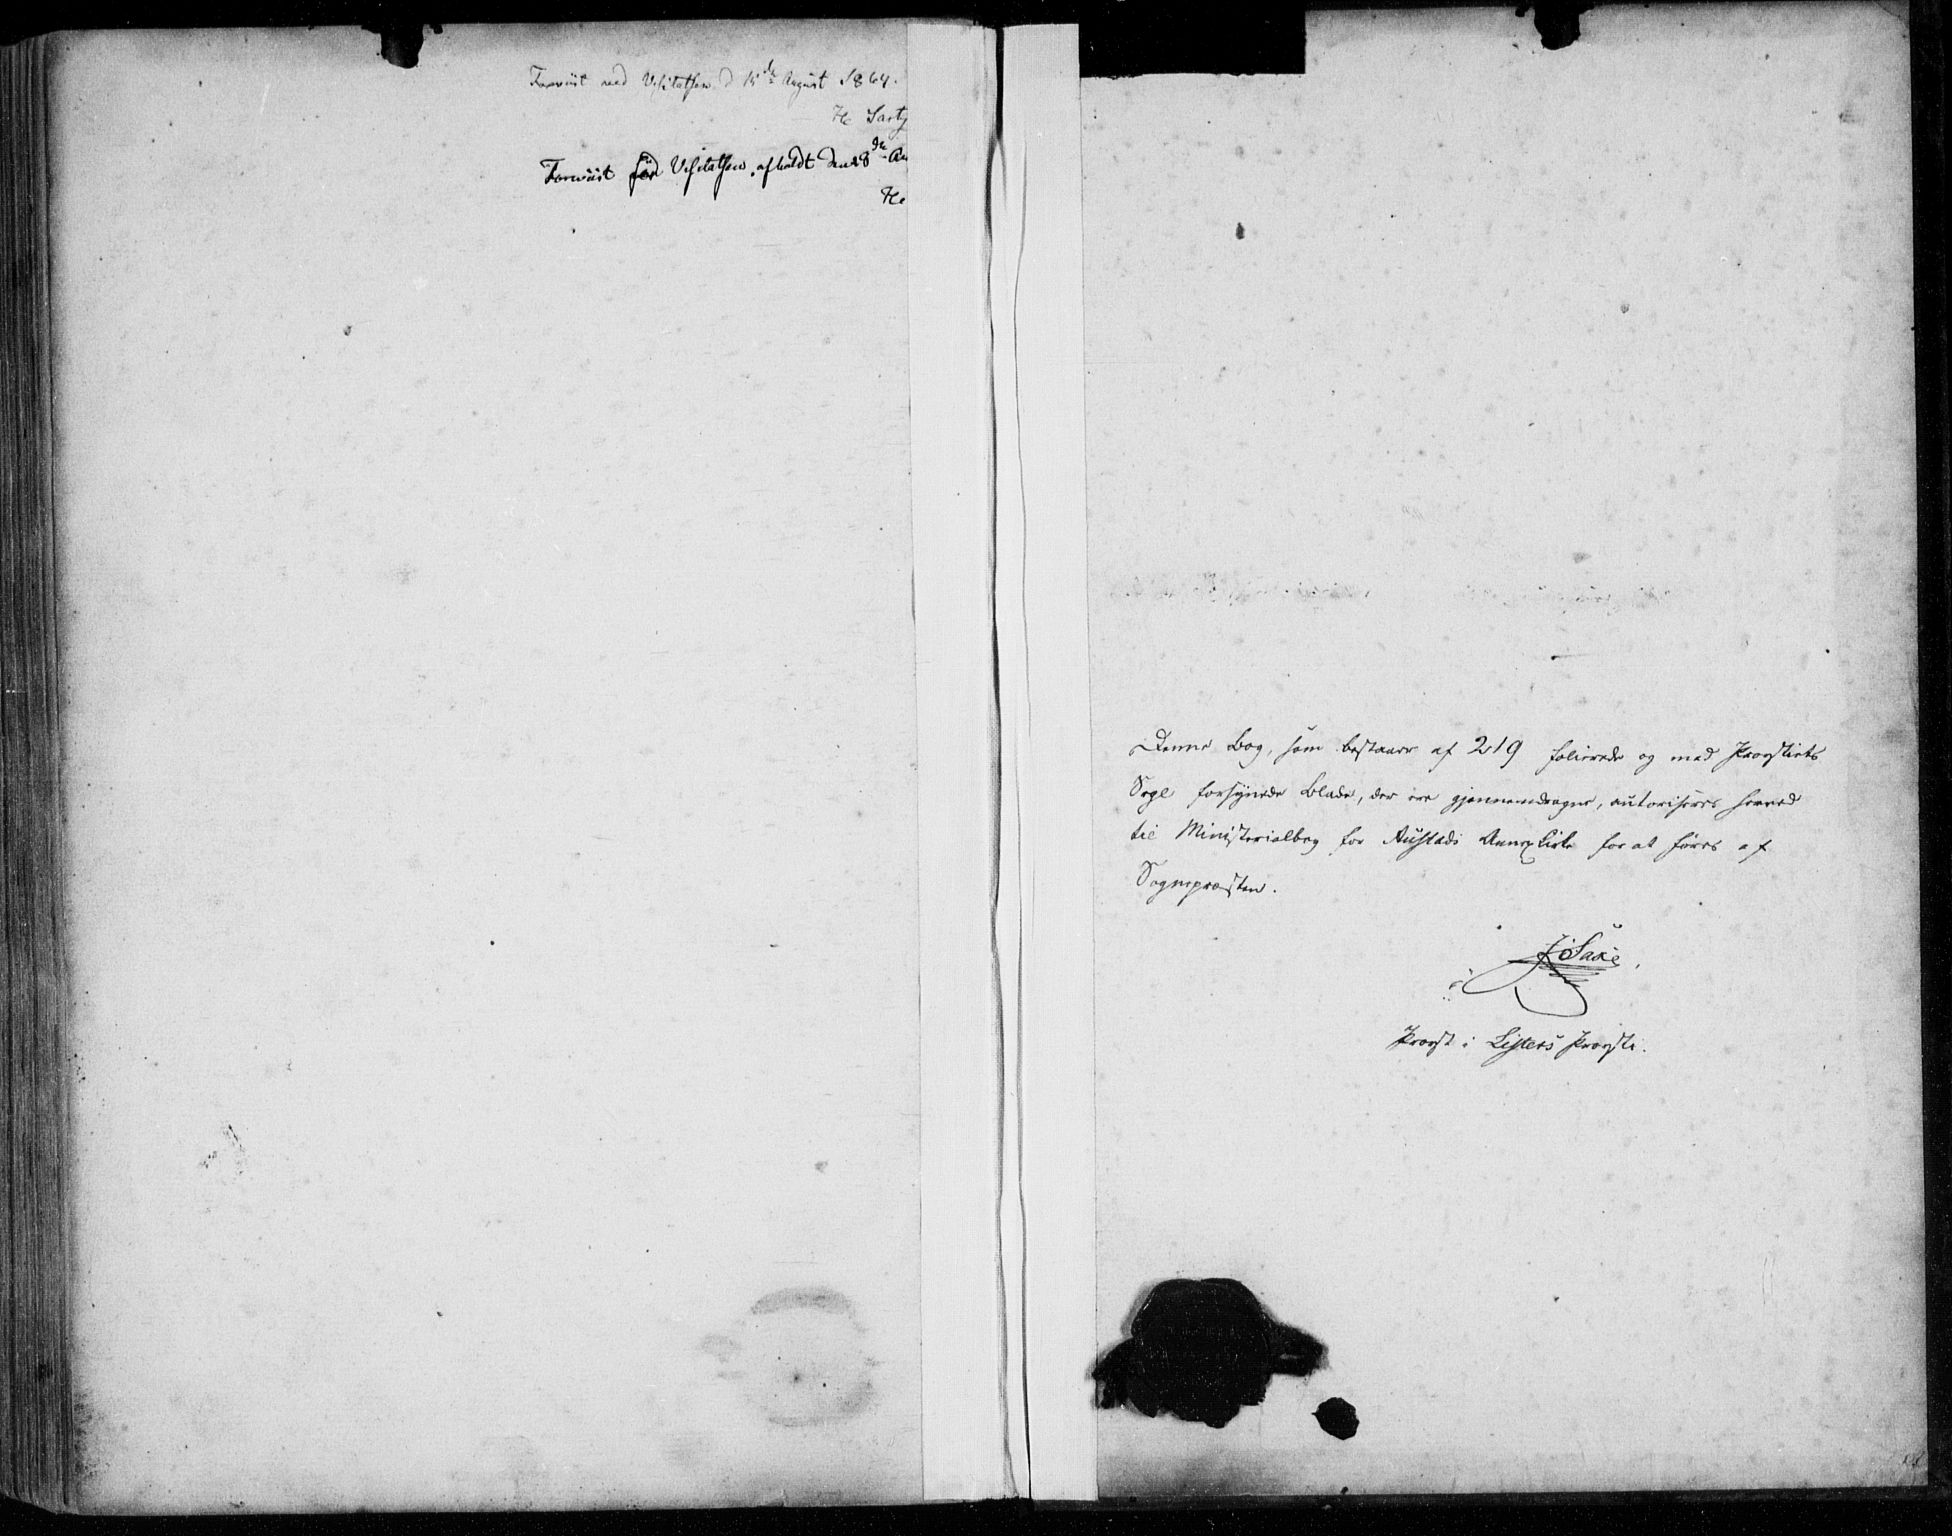 Foreviist ved Visitatsen d 15de August 1864.
H Sart
Foreviist før Visitatsen, afholdt den 28de Au
H
Denne Bog, som bestaaer af 219 folierede og med Provstiets
Segl forsynede Blade, der ere gjennemdragne, autoriseres herved
til Ministerialbog for Austads Annexkirke for at føres af
Sognepræsten.
J Saxe.
Provst i Listers Provsti.